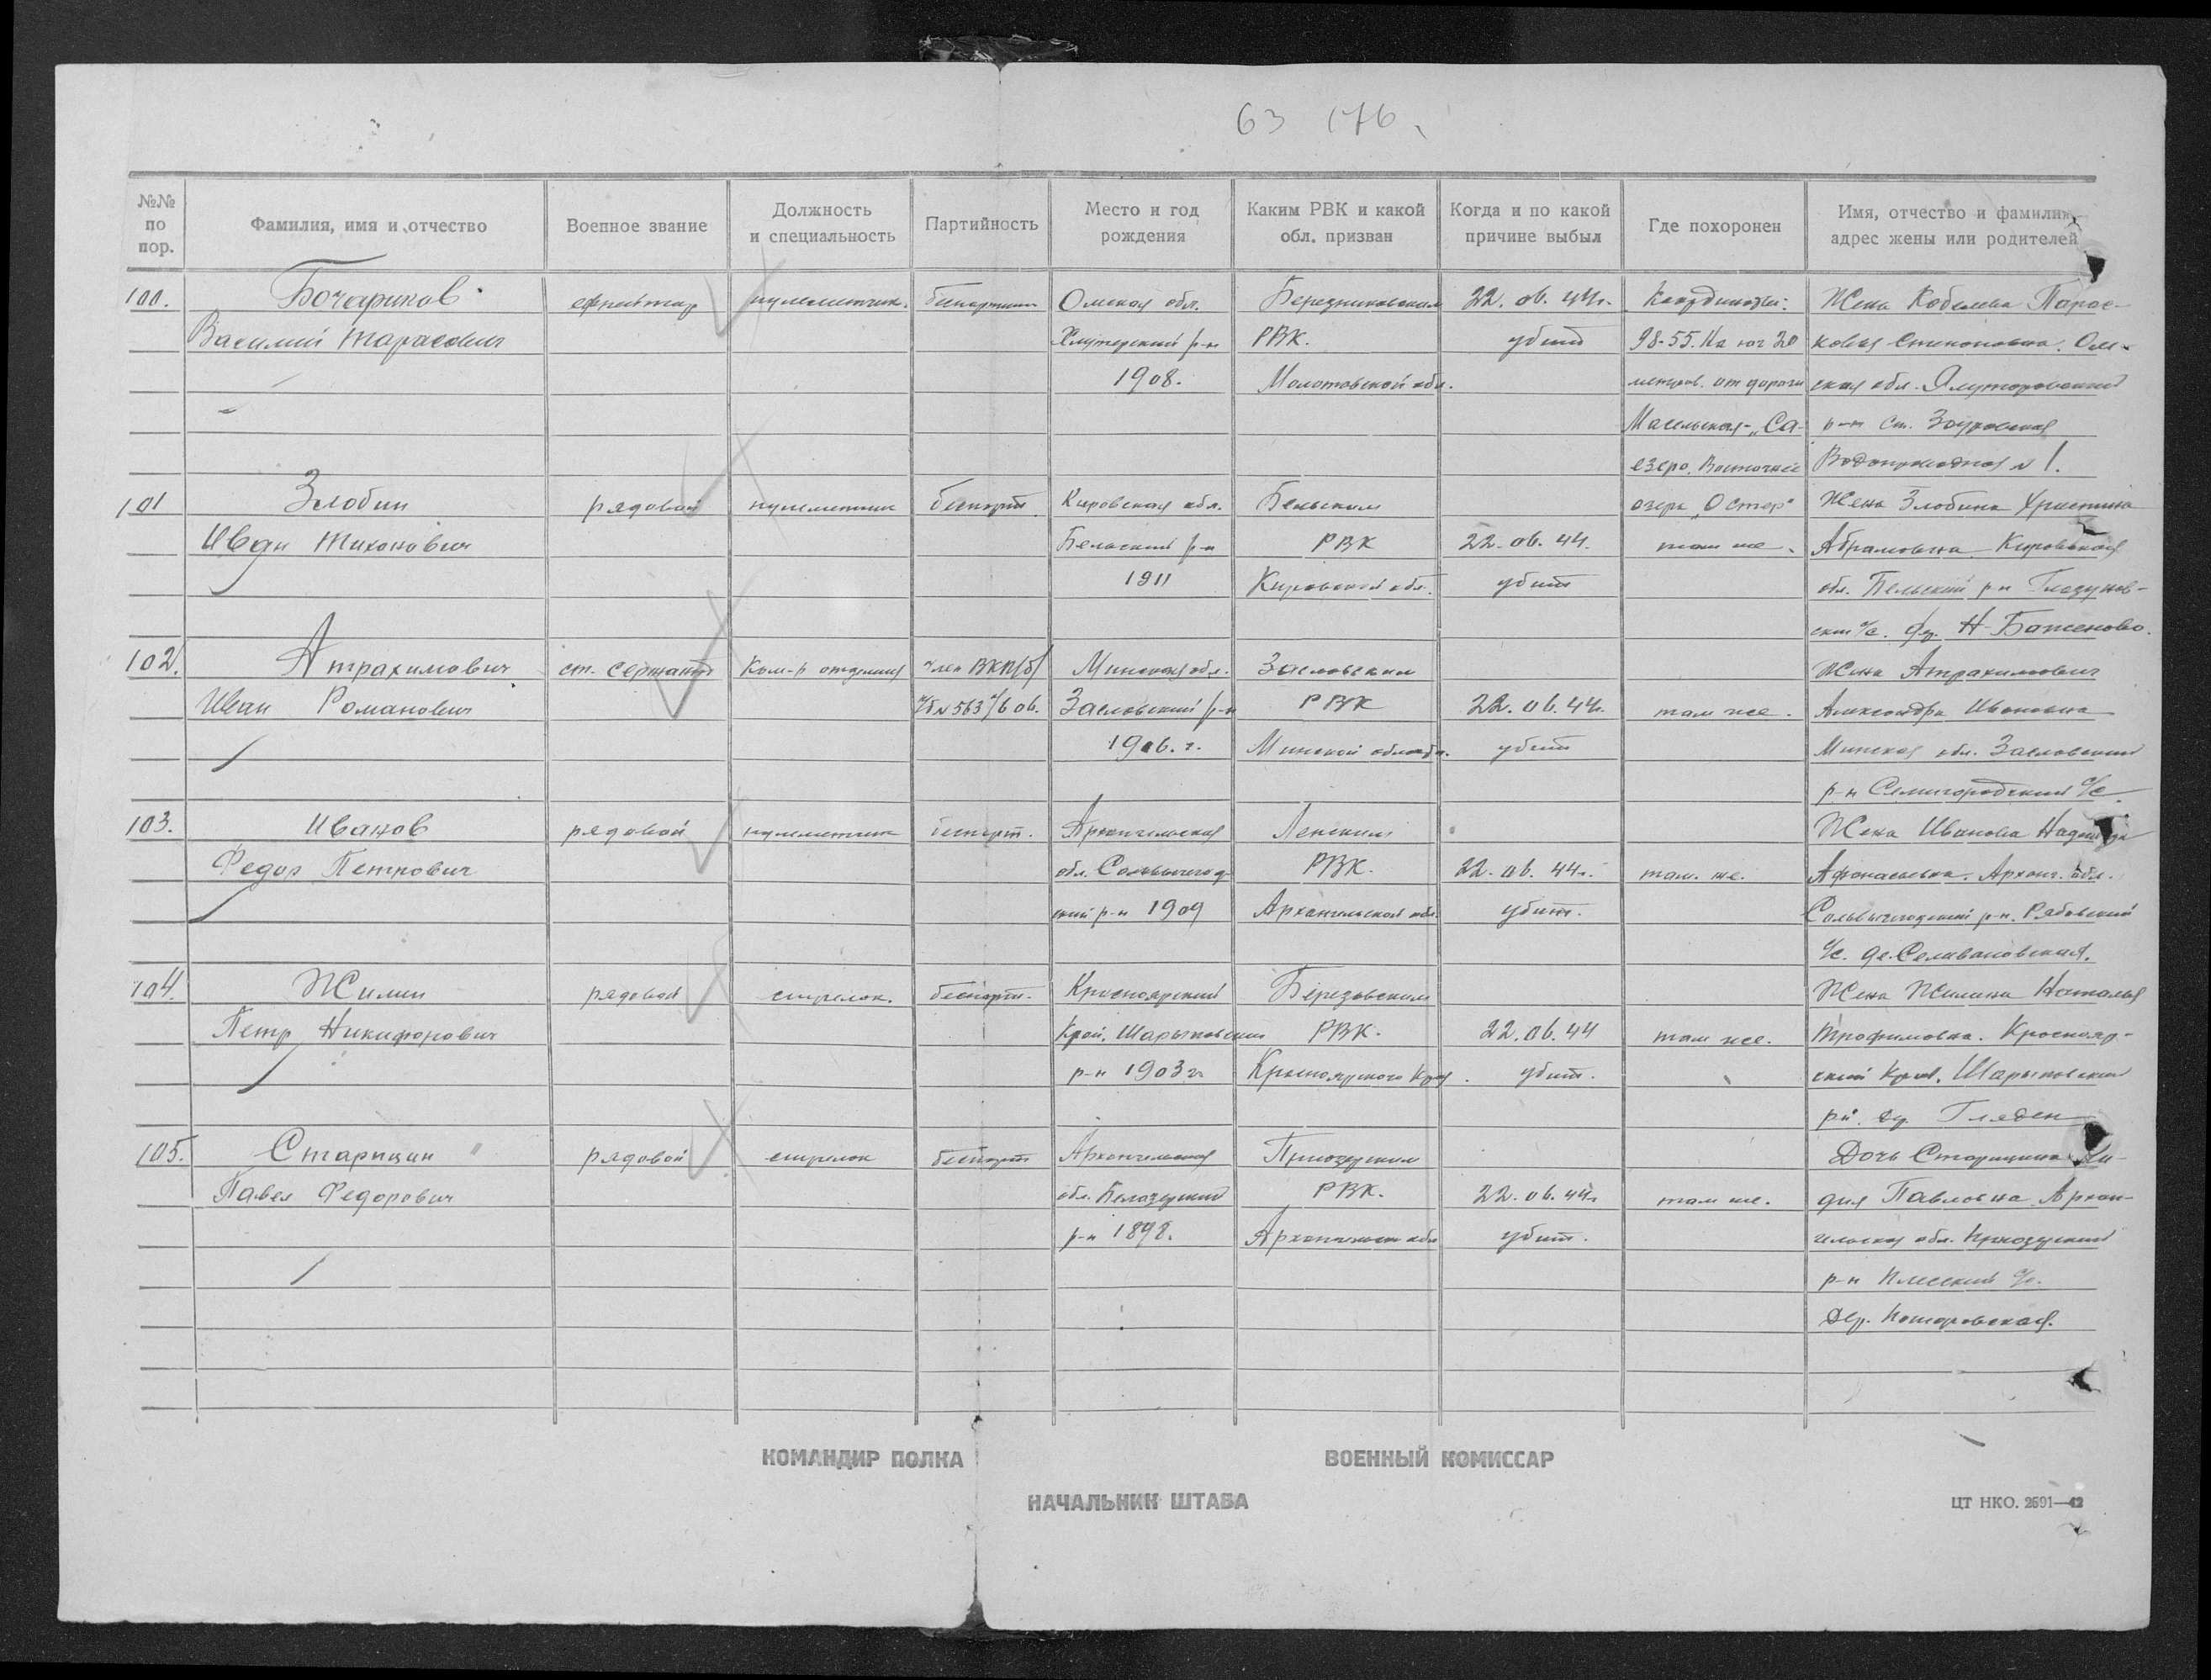 63 176
№№ по пор.
Фамилия, имя и отчество
Военное звание
Должность и специальность
Партийность
Место и год рождения
Каким РВК и какой обл. призван
Когда и по какой причине выбыл
Где похоронен
Имя, отчество и фамилия, адрес жены или родителей
100. Бочариков ефрейтор пулеметчик. Беспартийн Омская обл. Березниковским 22.06.44г. Координаты: Жена Кобелева Парас-
Василий Тарасович р-н РВК. убит 98-55. На юг 20 ковья Степановна. Ом-
1908. Молотовской обл. метров. от дороги ская обл. Ялуторовский
Масельская-„Са- р-н ст.
езеро, Восточнее Водопроводная № 1.
101 Злобин рядовой пулеметчик беспарт. Кировская обл. Бельским озера „Остер" Жена Злобина Христина
Иван Тихонович Бельский р-н РВК 22.06.44. там же. Абрамовна Кировская
1911 Кировской обл. убит обл. Бельский р-н Глазунов-
ский с/с. д. Н-Баженово.
102. Атрахимович ст. сержант Ком-р отделения член ВКП/б/ Минская обл. Засловским Жена Атрахимович
Иван Романович п/б № 563 Засловский р-н РВК 22.06.44г. там же. Александра Ивановна
1906. г. Минской области. убит Минская обл. Засловский
р-н Семигородский с/с.
103. Иванов рядовой пулеметчик беспарт. Архангельская Ленским Жена Иванова Надежда
Федор Петрович обл. Сольвычегод РВК. 22.06.44г. там. же. Афанасьевна. Арханг. обл.
ский р-н 1909 Архангельской обл. убит. Сольвычегодский р-н. Рябовский
с/с. де. Селивановская.
104. Жилин рядовой стрелок. беспарт. Красноярский Березовским Жена Жилина Наталья
Петр Никифорович Край. Шарыповский РВК. 22.06.44 там же. Трофимовна. Краснояр-
р-н 1903 г. Красноярского Края. убит. ский Край. Шарыповский
рн. д. Гляден
105. Старицин рядовой стрелок беспарт Архангельская Приозерским Дочь Старицина Ли-
Павел Федорович обл. РВК. 22.06.44г. там же. дия Павловна Архан-
р-н 1898. Архангельской обл убит. гельская обл. Приозерский
р-н с/с.
Дер.
КОМАНДИР ПОЛКА
ВОЕННЫЙ КОМИССАР
НАЧАЛЬНИК ШТАБА
ЦТ НКО. 2591—42